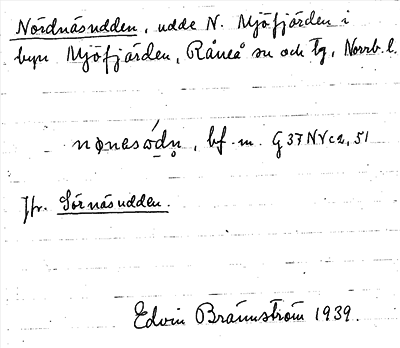 Nördnäsudden, udde N. Mjöfjärden i
byn Mjöfjärden, Råneå sn och tg, Norrb. l.
nønesódṇ, bf. m. G37NVc2,51
Jfr. Sörnäsudden.
Edvin Brännström 1939.